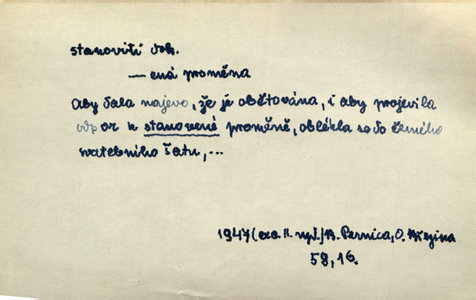 stanoviti dok.
— ená proměna
Aby dala najevo, že je obětována, i aby projevila
odpor k stanovené proměně, oblékla se do černého
svatebního šatu, ...
1947 (exc. II. vyd.) B. Pernica, O. Březina
58, 16.